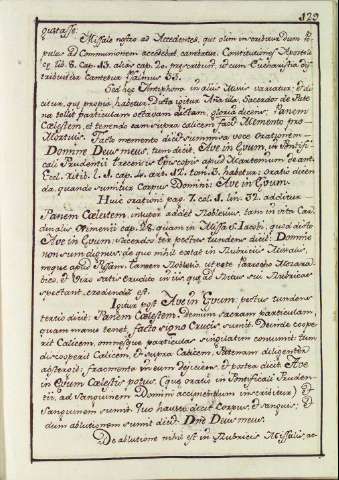 129
quatasse.
Missale nostro ad Accedentes, qui olim
pulus ad Communionem accedebat, cantabatur. Constitutiones Apostoli
cæ lib. 8. Cap. 13. aliàs cap. 20. prescribunt, ut cum Eucharistia dis
tribuitur Cantetur Psalmus 33.
Sed hæc Antiphona in aliis Missis variatur, & di
citur, quæ propria habetur. Dicta igitur Aña illa, Sacerdos de Pate
na tollit particulam octavam dictam, gloria dicens: Panem
Cælestem, et tenendo eam supra calicem facit Memento pro
Mortuis. Facto memento dicit summissa voce Orationem
Domine Deus meus, tum dicit, Ave in Ævum, in Pontifi
cali Prudentii Trecensis Episcopi apud Martenium de ant.
Eccl. ritib. l. 1. cap. 4. art. 12. tom. 3. habetur: oratio dicen
da, quando sumitur Corpus Domini: Ave in Ævum.
Huic orationi pag. 7. col. 1. lin. 32. additur
Panem Cælestem, inquit Robleius, tam in Car
dinalis Ximenii cap. 28. quam in Missa S. Iacobi, quo dicto
Ave in Ævum, Sacerdos ter pectus tundens dicit: Domine
non sum dignus, de quo nihil extat in Rubricis Missalis,
neque apud Pisam. Tamen Roblesio, ut pote Parocho Mozara
bico, et Viro satis erudito in iis, quæ ad Ritus sui Rubricas
spectant, credendum est.
Igitur post Ave in Ævum, pectus tundens
tertio dicit: Panem Cælestem. Demum sacram particulam,
quam manu tenet, facto signo Crucis sumit. Deinde coope
rit Calicem, omnesque particulas singulatim consumit: tum
discooperit Calicem, et supra Calicem, Patenam diligenter
absterget, fragmenta in eum dejiciens, et postea dicit Ave
in Ævum Cælestis potus, (quæ oratio in Pontificali Pruden
tii, ad Sanguinem Domini accipiendum inscribitur) et
Sanguinem sumit. Quo hausto dicit Corpus, et Sanguis, et
dum ablutionem sumit dicit Dñe Deus meus.
De ablutione nihil est in Rubricis Missalis, ac